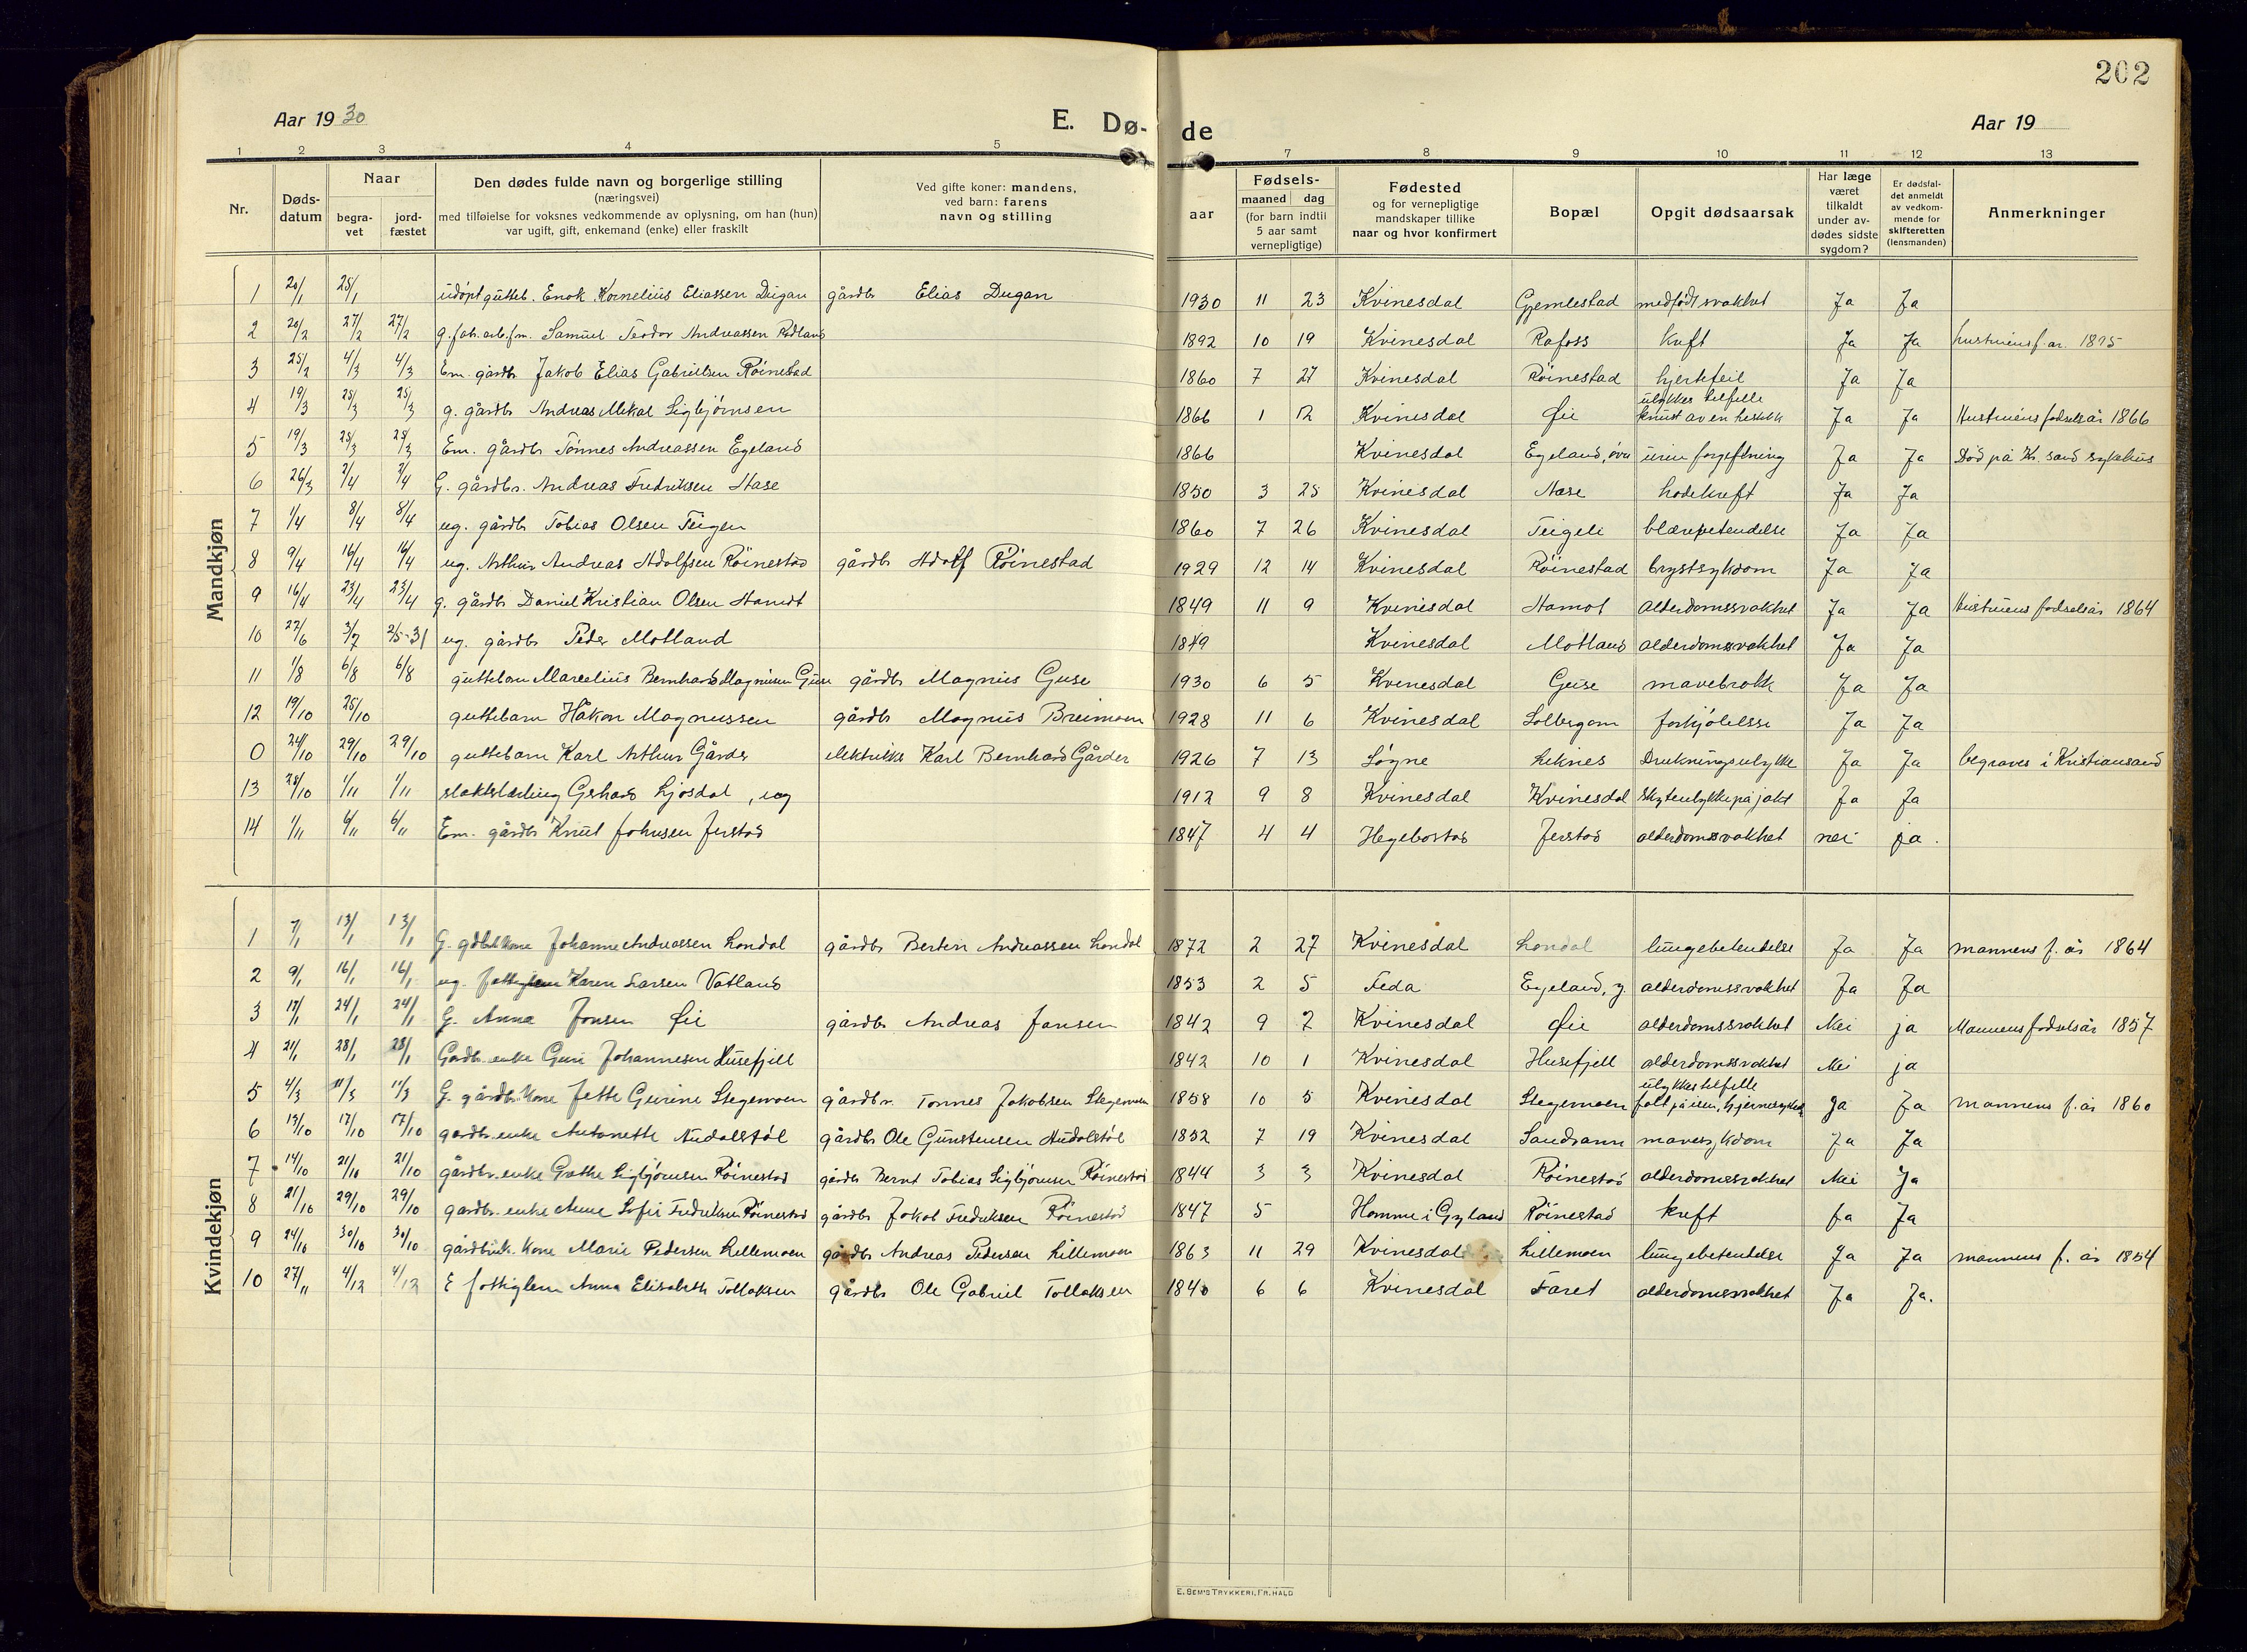 202
Aar 1930
E. Dø-
de
Aar 19
1 2 3 4 5 7 8 9 10 11 12 13
Nr.
Døds-
datum
Naar
begra-
vet
jord-
fæstet
Den dødes fulde navn og borgerlige stilling
(næringsvei)
med tilføielse for voksnes vedkommende av oplysning, om han (hun)
var ugift, gift, enkemand (enke) eller fraskilt
Ved gifte koner: mandens,
ved barn: farens
navn og stilling
Fødsels-
aar
maaned dag
(for barn indtil
5 aar samt
vernepligtige)
Fødested
og for vernepligtige
mandskaper tillike
naar og hvor konfirmert
Bopæl
Opgit dødsaarsak
Har læge
været
tilkaldt
under av-
dødes sidste
sygdom?
Er dødsfal-
det anmeldt
av vedkom-
mende for
skifteretten
(lensmanden)
Anmerkninger
Mandkjøn
1 20/1 25/1 udøpt gutteb. Enok Kornelius Eliassen Dugan gårdbr Elias Dugan 1930 11 23 Kvinesdal Gjemlestad medfødt svakhet Ja Ja
2 20/2 27/2 27/2 g. fab. arb. fm. Samuel Teodor Andreassen Rødland 1892 10 19 Kvinesdal Rafoss kreft Ja Ja hustruens f. år. 1895
3 25/2 4/3 4/3 Em. gårdbr. Jakob Elias Gabrielsen Röinestad 1860 7 27 Kvinesdal Röinestad hjertefeil Ja Ja
4 19/3 25/3 25/3 g. gårdbr Andreas Mikal Sigbjørnsen 1866 1 12 Kvinesdal Øie ulykkes tilfelle knust av en Ja Ja Hustruens fødselsår 1866
5 19/3 25/3 25/3 Em. gårdbr Tönnes Andreassen Egeland 1866 Kvinesdal Egeland, övre urin forgiftning Ja Ja Död på Kr. sand sykehus
6 26/3 2/4 2/4 G. gårdbr. Andreas Fredriksen Aase 1850 3 25 Kvinesdal Aase hodekreft Ja Ja
7 1/4 8/4 8/4 ug. gårdbr Tobias Olsen Teigen 1860 7 26 Kvinesdal Teigen blærebetendelse Ja Ja
8 9/4 16/4 16/4 ug. Arthur Andreas Adolfsen Röinestad gårdbr Adolf Röinestad 1929 12 14 Kvinesdal Röinestad brystsykdom Ja Ja
9 16/4 23/4 23/4 g. gårdbr Daniel Kristian Olsen Hamot 1849 11 9 Kvinesdal Hamot alderdomssvakhet Ja Ja Hustruens fødselsår 1864
10 27/6 3/7 2/5-31 ug. gårdbr Peder Motland 1849 Kvinesdal Motland alderdomssvakhet Ja Ja
11 1/8 6/8 6/8 guttebarn Marcelius Bernhard Magnusen Guse gårdbr Magnus Guse 1930 6 5 Kvinesdal Guse mavebrokk Ja Ja
12 19/10 25/10 guttebarn Håkon Magnussen gårdbr Magnus Breimoen 1928 11 6 Kvinesdal forkjölelsse Ja Ja
0 24/10 29/10 29/10 guttebarn Karl Arthur Gårder elektriker Karl Bernhard Gårder 1926 7 13 Søgne Liknes Drukningsulykke Ja Ja begraves i Kristiansand
13 28/10 1/11 1/11 slakterlærling Gerhard Ljosdal, ug 1912 9 8 Kvinesdal Kvinesdal Skyteulykke på jakt Ja Ja
14 1/11 6/11 6/11 Em. gårdbr Knut Johnsen Jerstad 1847 4 4 Hegebostad Jerstad alderdomssvakhet nei ja.
Kvindekjøn
1 7/1 13/1 13/1 G. gdbr kone Johanne Andreassen Londal gårdbr Bertin Andreassen Londal 1872 2 27 Kvinesdal Londal lungebetendelse Ja Ja mannens f. år 1864
2 9/1 16/1 16/1 ug. fattiglem Karen Larsen Vatland 1853 2 5 Feda Egeland, y. alderdomssvakhet Ja Ja
3 17/1 24/1 24/1 G. Anna Jonsen Øie gårdbr Andreas Jansen 1842 9 7 Kvinesdal Øie alderdomssvakhet Nei ja Mannens fødselsår 1857
4 21/1 28/1 28/1 Gårdbr. enke Guri Johannesen Husefjell 1842 10 1 Kvinesdal Husefjell alderdomssvakhet Nei ja
5 4/3 11/3 11/3 G. gårdbr. kone Jette Gurine Stegemoen gårdbr. Tønnes Jakobsen Stegemoen 1858 10 5 Kvinesdal Stegemoen ulykkes tilfelle falt på isen, Ja Ja mannens f. år 1860
6 13/10 17/10 17/10 gårdbr. enke Antonette Audalstöl gårdbr Ole Gunstensen Audalstöl 1852 7 19 Kvinesdal mavesykdom Ja Ja
7 14/10 21/10 21/10 gårdbr. enke Grethe Sigbjörnsen Röinestad gårdbr Bernt Tobias Sigbjörnsen Röinestad 1844 3 3 Kvinesdal Röinestad alderdomssvakhet Nei Ja
8 21/10 29/10 29/10 gårdbr. enke Anne Sofie Fredriksen Röinestad gårdbr Jakob Fredriksen Röinestad 1847 5 Homme i Gyland Röinestad kreft ja Ja
9 24/10 30/10 30/10 gårdbruk. kone Marie Pedersen Lillemoen gårdbr Andreas Pedersen Lillemoen 1863 11 29 Kvinesdal Lillemoen lungebetendelse Ja Ja mannens f. år 1854
10 27/11 4/12 4/12 E fattiglem Anna Elisabeth Tollaksen gårdbr Ole Gabriel Tollaksen 1840 6 6 Kvinesdal Faret alderdomssvakhet Ja Ja.
E. SEM'S TRYKKERI, FR. HALD